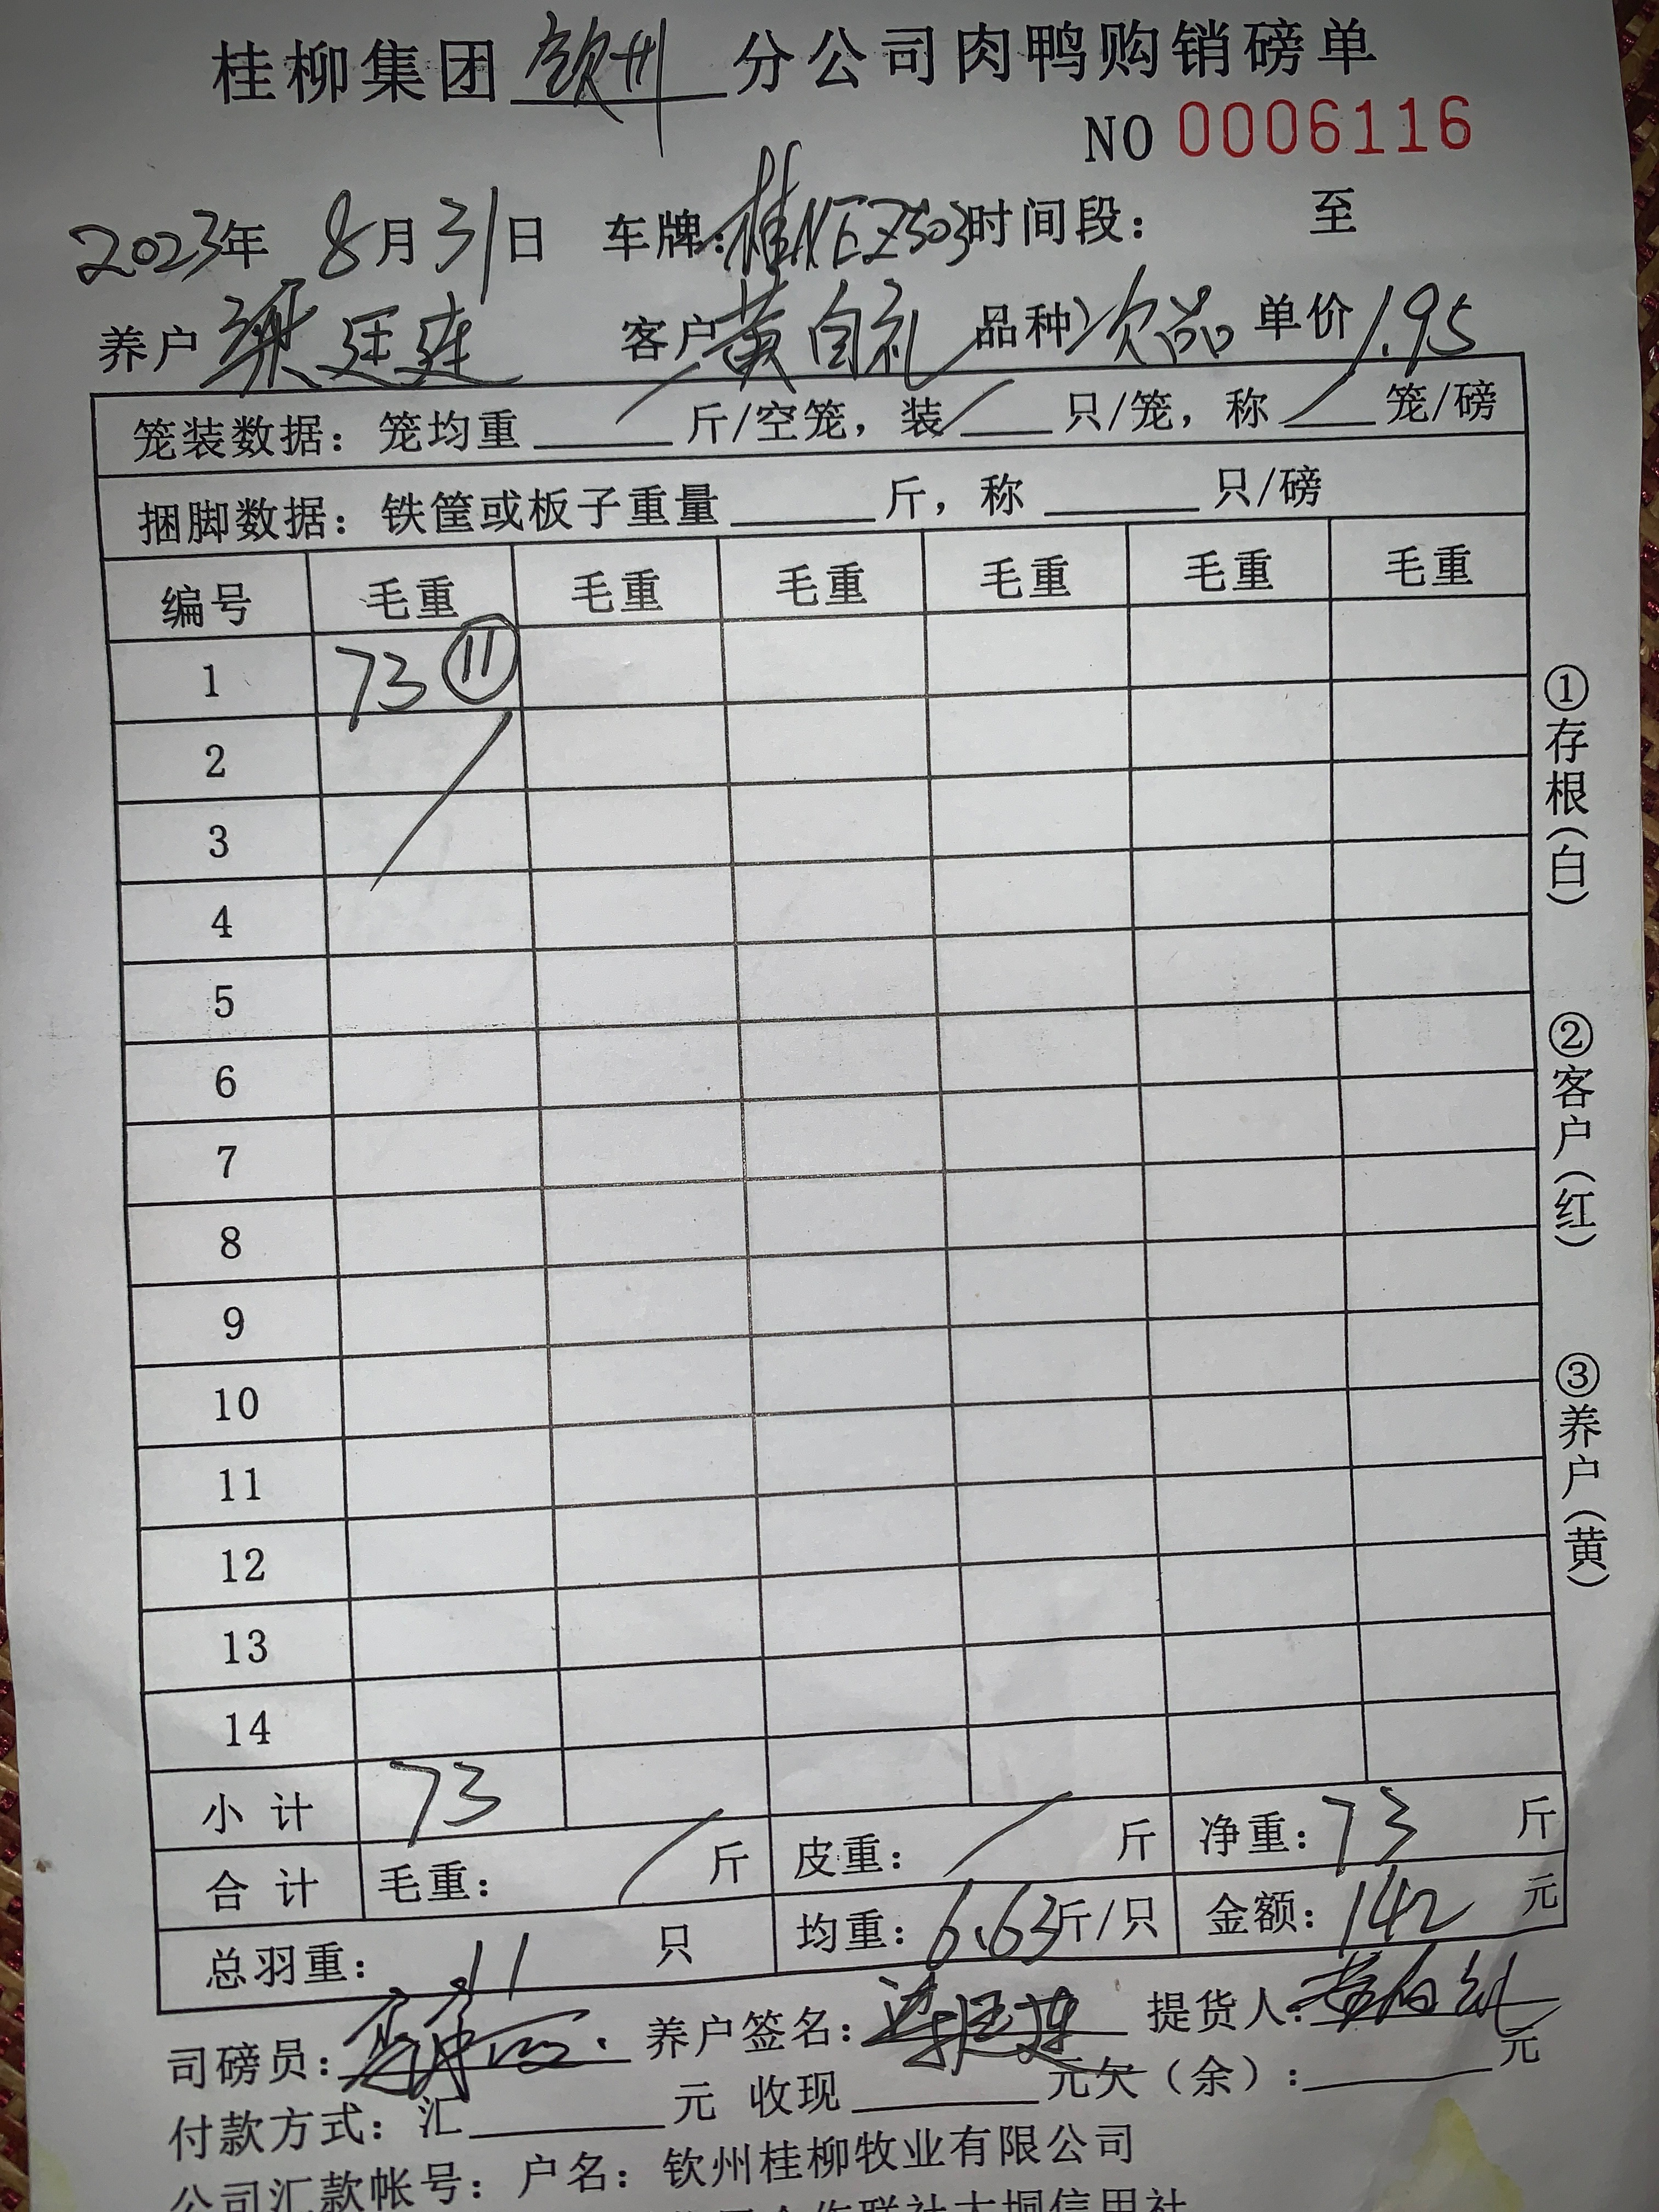 桂柳集团 钦州 分公司肉鸭购销磅单
NO 0006116
2023年 8月31日 车牌：桂 时间段： 至
养户 梁廷连 客户 黄自礼 品种 次品 单价 1.95
笼装数据：笼均重 / 斤/空笼，装 / 只/笼，称 / 笼/磅
捆脚数据：铁筐或板子重量 斤，称 只/磅
编号 毛重 毛重 毛重 毛重 毛重 毛重
1 73 ⑪
2
3
4
5
6
7
8
9
10
11
12
13
14
小计 73
合计 毛重： / 斤 皮重： / 斤 净重：73 斤
总羽重： 11 只 均重：6.63斤/只 金额：142 元
司磅员： 养户签名： 提货人：
付款方式：汇 元 收现 元欠（余）： 元
公司汇款帐号：户名：钦州桂柳牧业有限公司
合作联社大垌信用社
①存根（白）
②客户（红）
③养户（黄）